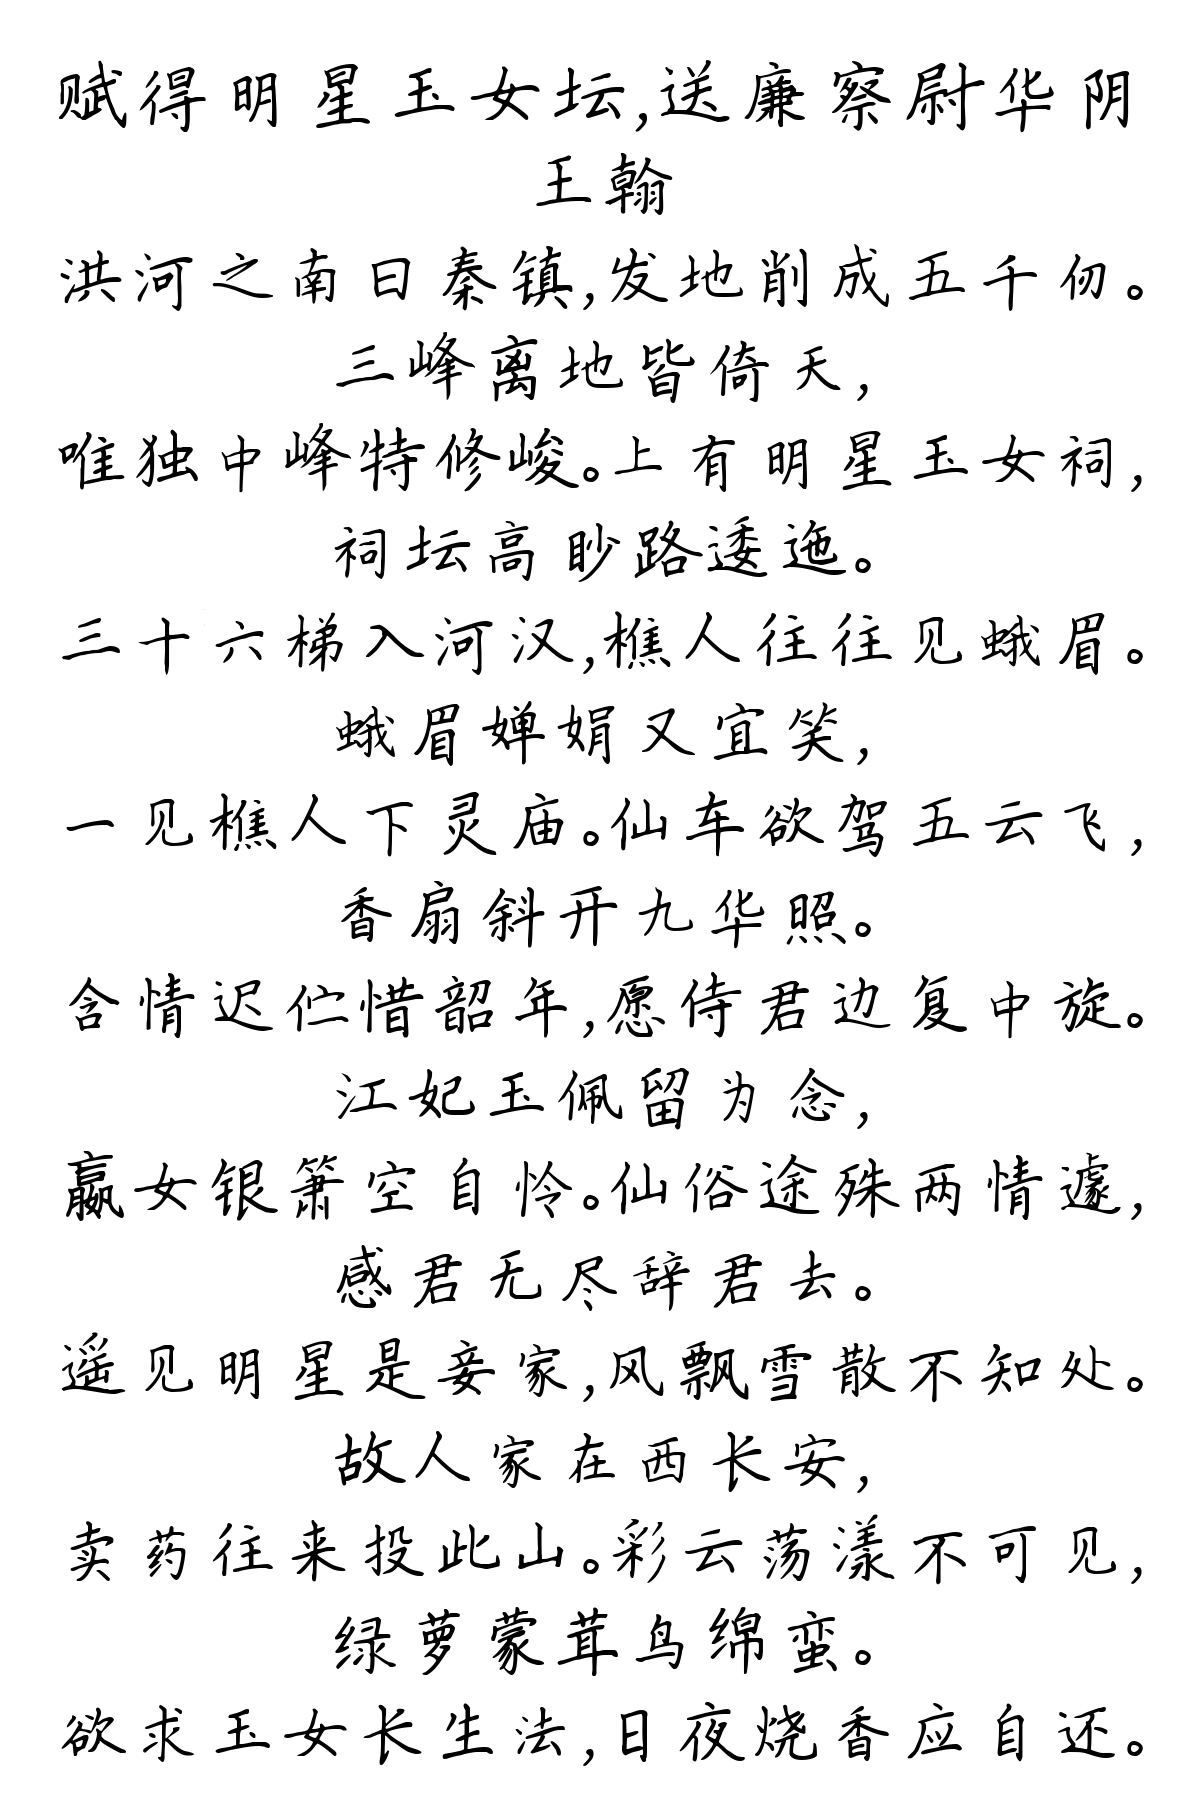 赋得明星玉女坛,送廉察尉华阴
王翰
洪河之南曰秦镇,发地削成五千仞。
三峰离地皆倚天,
唯独中峰特修峻。上有明星玉女祠,
祠坛高眇路逶迤。
三十六梯入河汉,樵人往往见蛾眉。
蛾眉婵娟又宜笑,
一见樵人下灵庙。仙车欲驾五云飞,
香扇斜开九华照。
含情迟伫惜韶年,愿侍君边复中旋。
江妃玉佩留为念,
嬴女银箫空自怜。仙俗途殊两情遽,
感君无尽辞君去。
遥见明星是妾家,风飘雪散不知处。
故人家在西长安,
卖药往来投此山。彩云荡漾不可见,
绿萝蒙茸鸟绵蛮。
欲求玉女长生法,日夜烧香应自还。